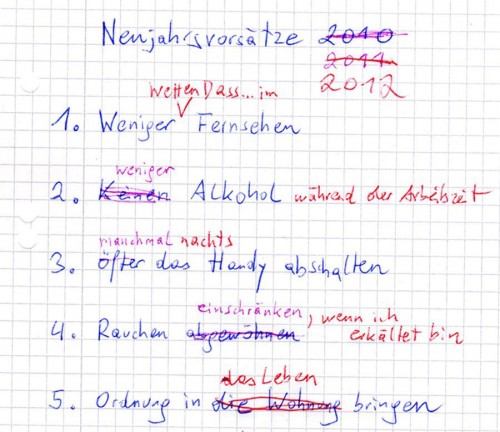 Neujahrsvorsätze 2010
2011
2012
Wetten Dass... im
1. Weniger Fernsehen
weniger
2. Keinen Alkohol während der Arbeitszeit
manchmal nachts
3. öfter das Handy abschalten
einschränken, wenn ich
4. Rauchen abgewöhnen erkältet bin
das Leben
5. Ordnung in die Wohnung bringen